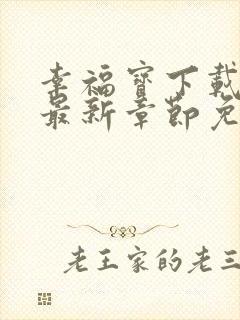 幸福宝下载
最新章节免
老王家的老三